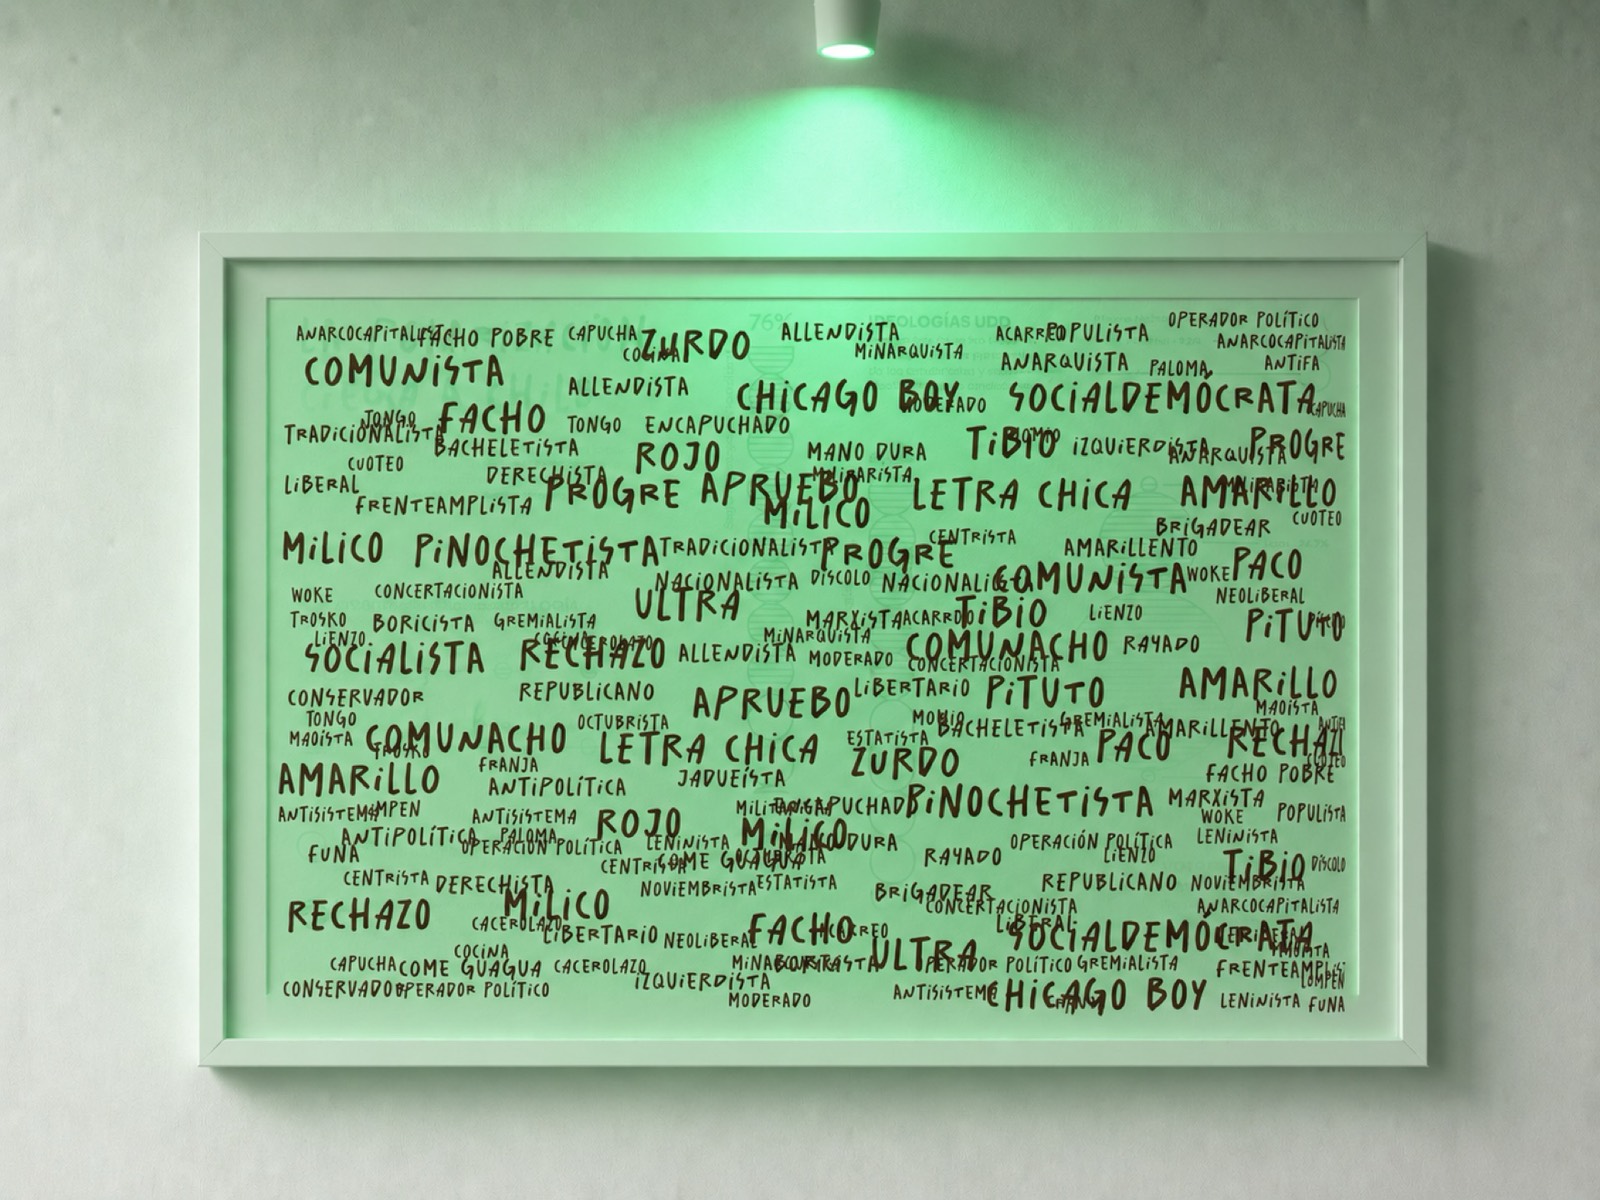 OPERADOR POLÍTICO
ANARCOCAPITALISTA FACHO POBRE CAPUCHA ZURDO ALLENDISTA ACARREO POPULISTA ANARCOCAPITALISTA
COCINA MINARQUISTA ANARQUISTA PALOMA ANTIFA
COMUNISTA ALLENDISTA CHICAGO BOY MODERADO SOCIALDEMÓCRATA CAPUCHA
TONGO FACHO TONGO ENCAPUCHADO
TRADICIONALISTA BACHELETISTA ROJO MANO DURA TIBIO MOMIO IZQUIERDISTA ANARQUISTA PROGRE
CUOTEO DERECHISTA MILITARISTA
LIBERAL FRENTEAMPLISTA PROGRE APRUEBO LETRA CHICA AMARILLO
MILICO BRIGADEAR CUOTEO
MILICO PINOCHETISTA TRADICIONALISTA PROGRE CENTRISTA AMARILLENTO PACO
ALLENDISTA NACIONALISTA DÍSCOLO NACIONALISTA COMUNISTA WOKE
WOKE CONCERTACIONISTA ULTRA NEOLIBERAL
TROSKO BORICISTA GREMIALISTA MARXISTA ACARREO TIBIO LIENZO PITUTO DÍSCOLO
LIENZO COCINA CACEROLAZO MINARQUISTA
SOCIALISTA RECHAZO ALLENDISTA MODERADO COMUNACHO RAYADO
CONCERTACIONISTA
CONSERVADOR REPUBLICANO APRUEBO LIBERTARIO PITUTO AMARILLO
TONGO OCTUBRISTA MOMIO BACHELETISTA GREMIALISTA AMARILLENTO MAOÍSTA
ANTIFA
MAOÍSTA COMUNACHO TROSKO LETRA CHICA ESTATISTA ZURDO FRANJA PACO RECHAZO
CUOTEO
AMARILLO FRANJA ANTIPOLÍTICA JADUEÍSTA FACHO POBRE
ANTISISTEMA LUMPEN ANTISISTEMA MILITARISTA ENCAPUCHADO PINOCHETISTA MARXISTA WOKE POPULISTA
ANTIPOLÍTICA PALOMA ROJO MILICO MANO DURA OPERACIÓN POLÍTICA LENINISTA
FUNA OPERACIÓN POLÍTICA LENINISTA RAYADO LIENZO
CENTRISTA COME GUAGUA OCTUBRISTA TIBIO DÍSCOLO
CENTRISTA DERECHISTA NOVIEMBRISTA ESTATISTA BRIGADEAR REPUBLICANO NOVIEMBRISTA
RECHAZO MILICO CONCERTACIONISTA ANARCOCAPITALISTA
CACEROLAZO LIBERTARIO NEOLIBERAL FACHO ACARREO LIBERAL SOCIALDEMÓCRATA
COCINA ULTRA
CAPUCHA COME GUAGUA CACEROLAZO OPERADOR POLÍTICO GREMIALISTA FRENTEAMPLISTA
CONSERVADOR OPERADOR POLÍTICO IZQUIERDISTA ANTISISTEMA CHICAGO BOY FRANJA LUMPEN
MODERADO LENINISTA FUNA